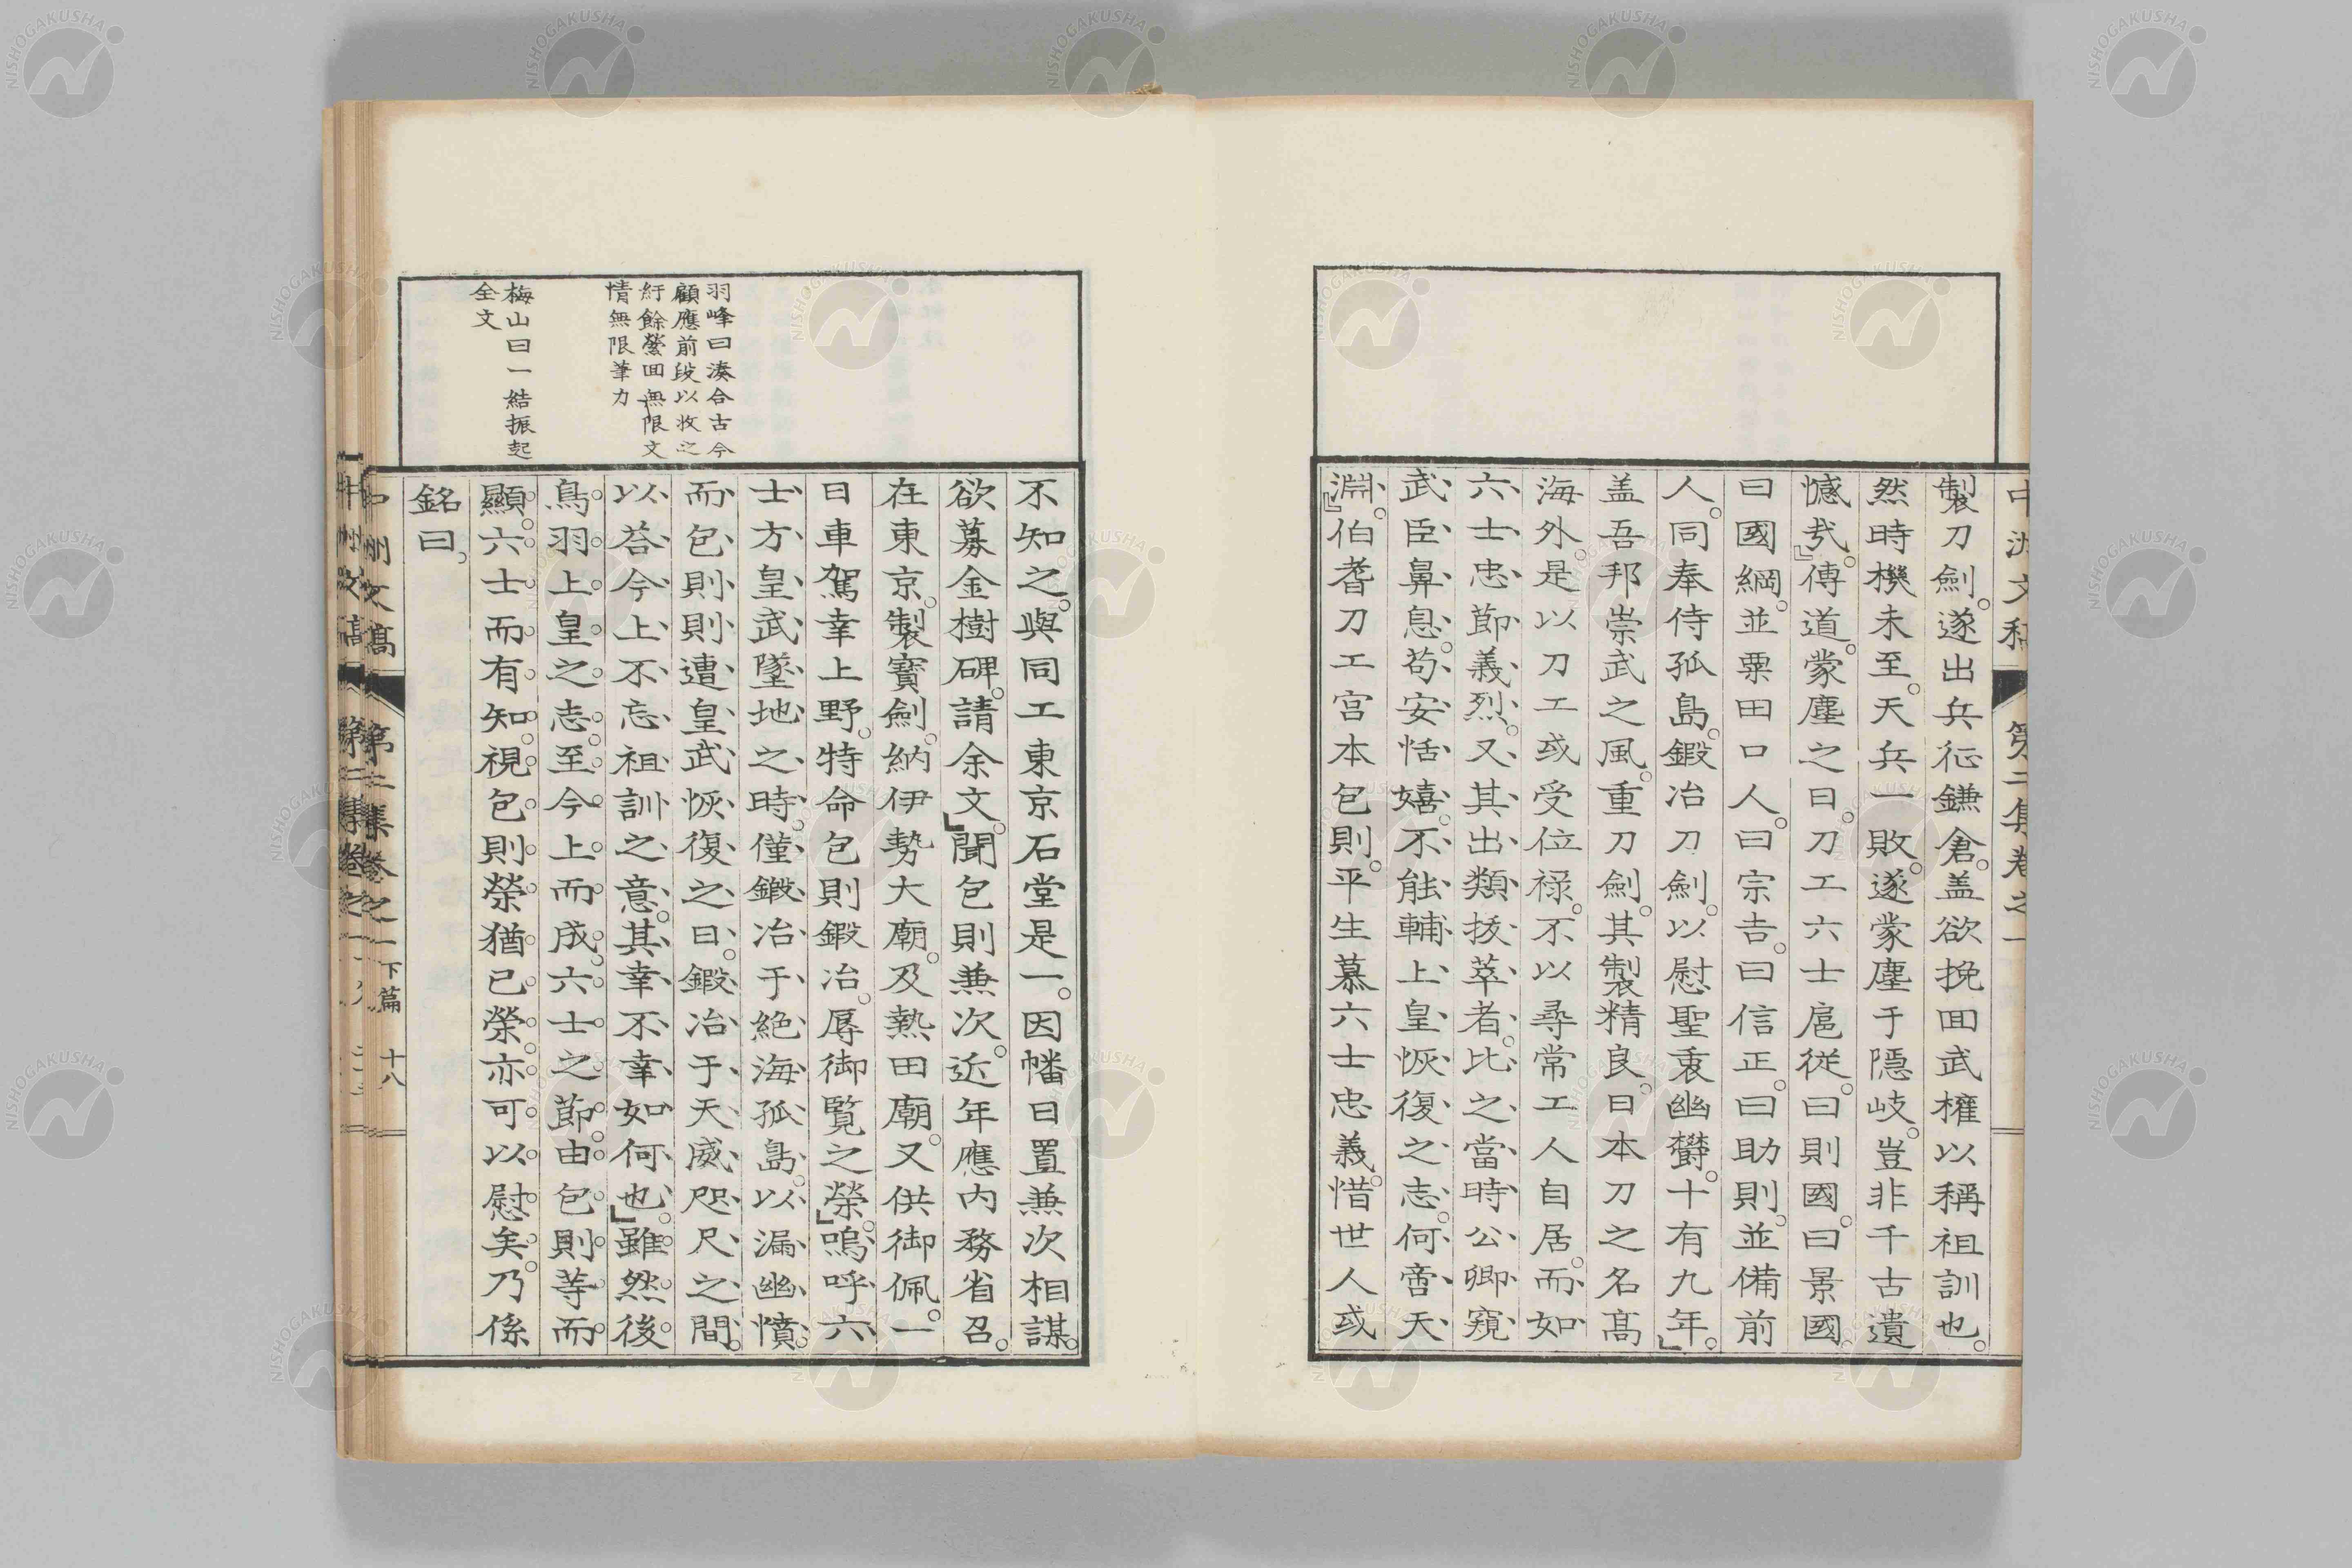 製刀劍。遂出兵征鎌倉。盖欲挽回武權以稱祖訓也。
然時機未至。天兵一敗。遂蒙塵于隱岐。豈非千古遺
憾㢤。』傳道。蒙塵之日。刀工六士扈從。曰則國。曰景國。
曰國綱。並粟田口人。曰宗吉。曰信正。曰助則。並備前
人。同奉侍孤島。鍛冶刀劍。以慰聖衷幽欝。十有九年。』
盖吾邦崇武之風。重刀劍。其製精良。日本刀之名髙
海外。是以刀工或受位祿。不以尋常工人自居。而如
六士忠節義烈。又其出類拔萃者。比之當時公卿窺
武臣鼻息。苟安恬嬉。不能輔上皇恢復之志。何啻天
淵。』伯耆刀工宮本包則。平生慕六士忠義。惜世人或
中洲文稿 第二集卷之一
不知之。與同工東京石堂是一。因幡日置兼次相謀。
欲募金樹碑。請余文。』聞包則兼次。近年應内務省召。
在東京。製寶劍。納伊勢大廟。及熱田廟。又供御佩。一
日車駕幸上野。特命包則鍛冶。辱御覧之榮。』嗚呼六
士方皇武墜地之時。僅鍛冶于絶海孤島。以漏幽憤。
而包則則遭皇武恢復之日。鍛冶于天威咫尺之間。
以荅今上不忘祖訓之意。其幸不幸如何也。』雖然後
鳥羽上皇之志。至今上而成。六士之節。由包則等而
顯。六士而有知。視包則榮。猶己榮。亦可以慰矣。乃係
銘曰。
羽峰曰湊合古今
顧應前段以收之
紆餘縈回無限文
情無限筆力
梅山曰一結振起
全文
中洲文稿 第二集卷之一 下篇 十八